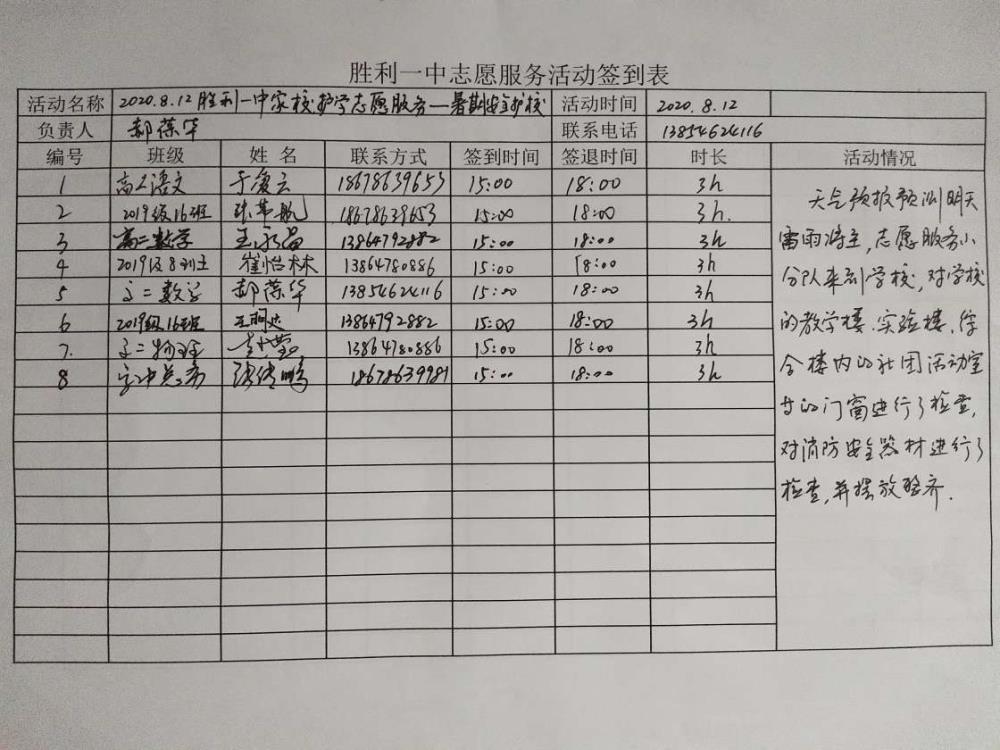 胜利一中志愿服务活动签到表
活动名称 2020.8.12胜利一中家校护学志愿服务—暑期安全护校 活动时间 2020.8.12
负责人 郝葆华 联系电话 13854624116
编号 班级 姓名 联系方式 签到时间 签退时间 时长 活动情况
1 高二语文 于爱云 18678639653 15:00 18:00 3h
2 2019级16班 18678639653 15:00 18:00 3h.
3 高二数学 王永昌 13864792882 15:00 18:00 3h
4 2019级8班 崔怡林 13864780886 15:00 18:00 3h
5 高二数学 郝葆华 13854624116 15:00 18:00 3h
6 2019级16班 13864792882 15:00 18:00 3h
7. 高二物理 13864780886 15:00 18:00 3h
8 18678639981 15:00 18:00 3h
天气预报预测明天
雷雨将至,志愿服务小
分队来到学校,对学校
的教学楼.实验楼.综
合楼内的社团活动室
等的门窗进行了检查,
对消防安全器材进行了
检查,并摆放整齐.